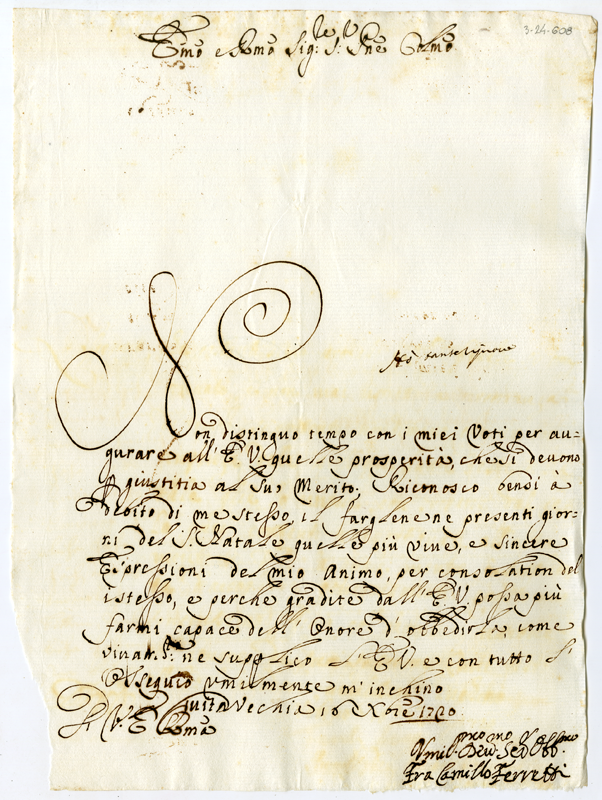 3-24-608
Emo e Rmo Sig:re S:r Pne Colmo
Non distinguo tempo con i miei Voti per au=
gurare all'E. V. quelle prosperità, che si devono
p giustitia al suo Merito; Riconosco bensì à
debito di me stesso, il fargliene ne presenti gior-
ni del S. Natale quelle più vive, e sincere
Espressioni del mio Animo, per consolation del
istesso, e perche gradite dall'E. V. possa più
farmi capace dell'Onore d'obbedirla, come
vivam.te ne supplico l'E. V. e con tutto l'
Ossequio umilmente m'inchino
Civita Vechia 16 Xbre 1720
Di V. E. Rma
Umil.mo Dev.mo Ser. Obb.mo
Fra Camillo Ferretti